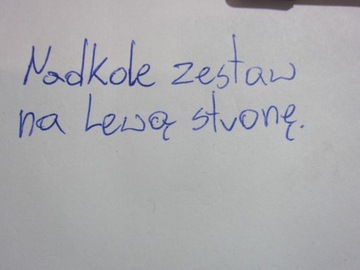 Nadkole zestaw
na Lewą stronę.